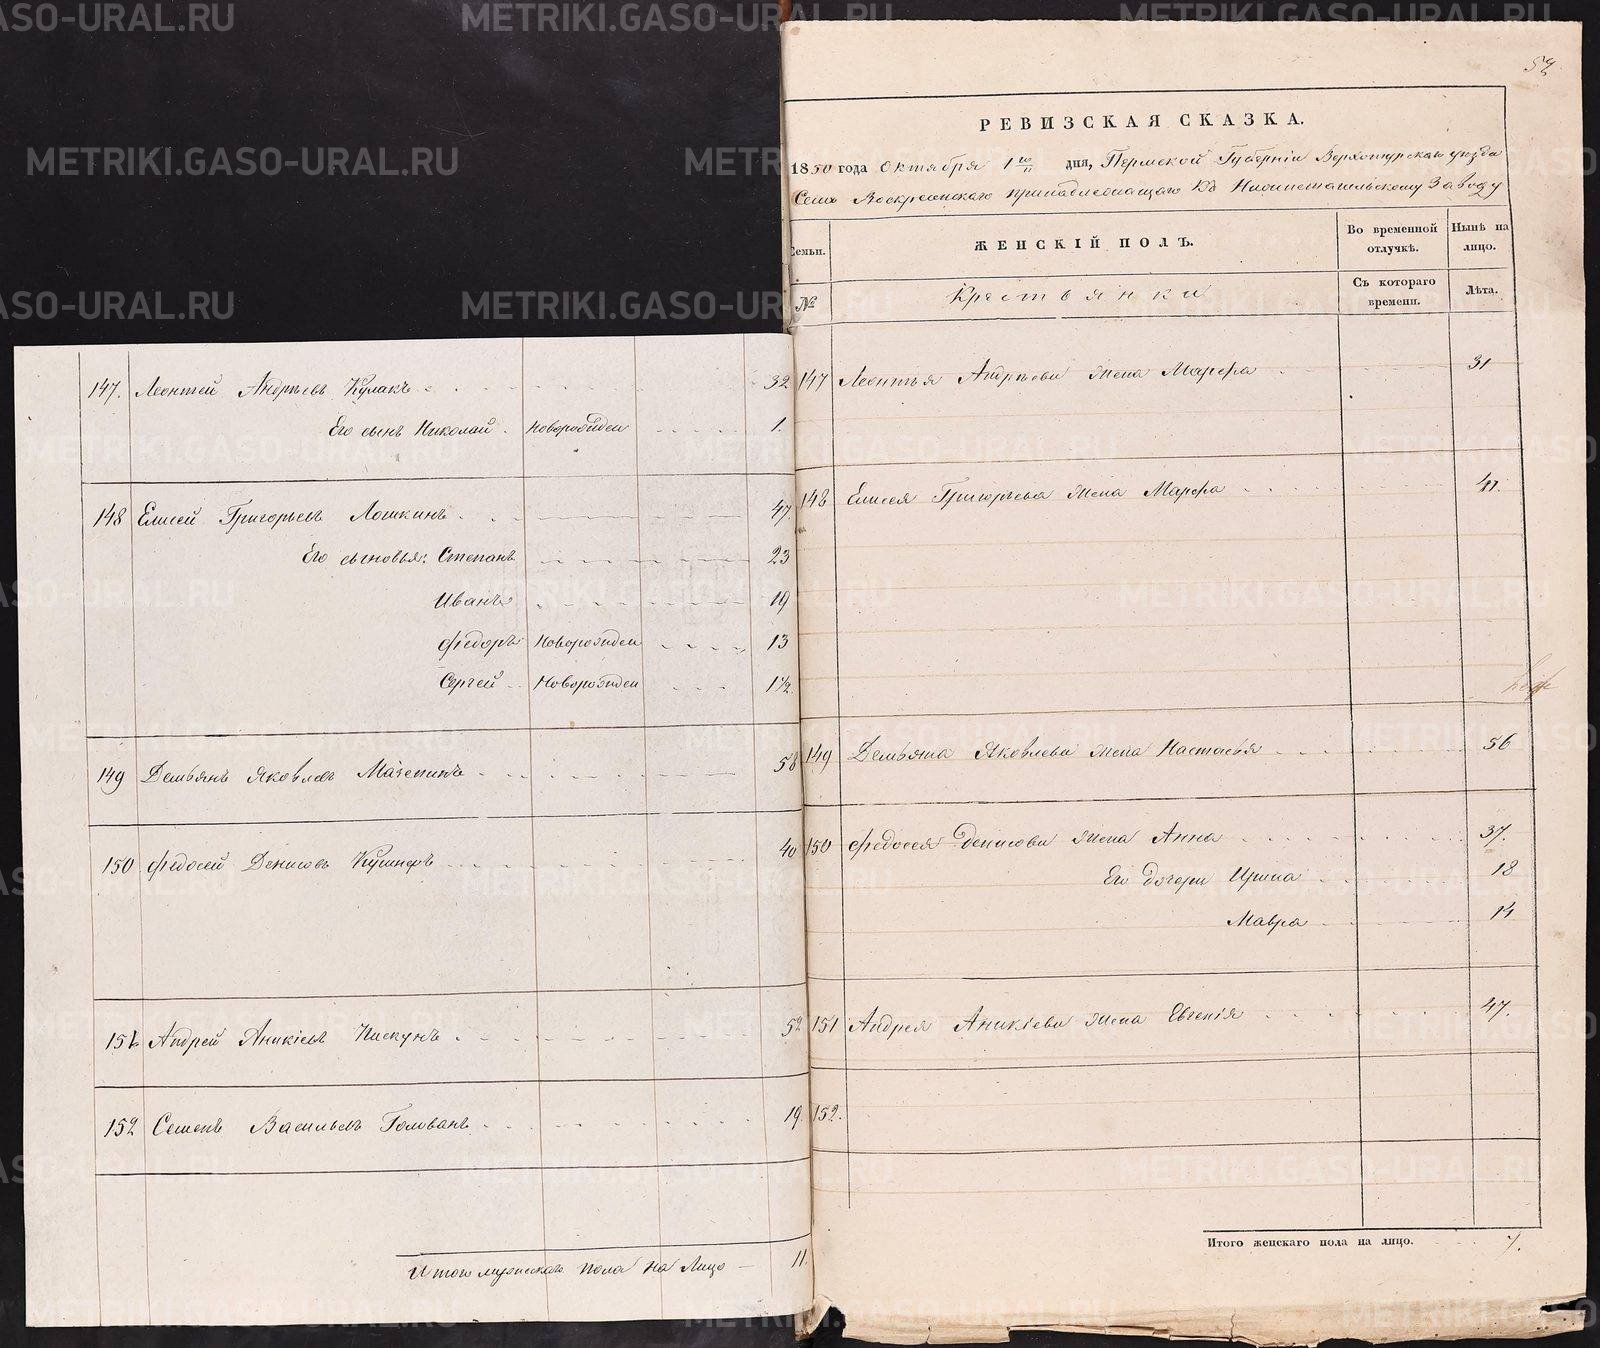 147. Леонтей Андрѣевъ Кулакъ 32
Его сынъ Николай Новорожден 1.
148 Елисей Григорьевъ Лошкинъ 47
Его сыновья: Степанъ 23
Иванъ 19
Федоръ Новорожден 13
Сергей Новорожден 1½
149 Демьянъ Яковлевъ Мазепинъ 58
150 Федосей Денисовъ Кушнеръ 40
151 Андрей Аникіевъ Пискунъ 52
152 Семенъ Васильевъ Голованъ 19.
Итого мужескаго пола на лицо 11.
52
РЕВИЗСКАЯ СКАЗКА.
1850 года Октября 1го дня, Пермской Губерніи Верхотурскаго уезда
Села Воскресенскаго принадлежащаго Къ Нижнетагильскому Заводу
Семьи. ЖЕНСКІЙ ПОЛЪ. Во временной отлучкѣ. Нынѣ на лицо.
№ Крестьянки Съ котораго времени. Лѣта.
147 Леонтья Андрѣева жена Марфа 31
148 Елисея Григорьева жена Марфа 41.
149 Демьяна Яковлева жена Настасья 56
150 Федосея Денисова жена Анна 37.
Его дочери Ирина 18
Мавра 14
151 Андрея Аникіева жена Евгенія 47.
152.
Итого женскаго пола на лицо. 7.
METRIKI.GASO-URAL.RU